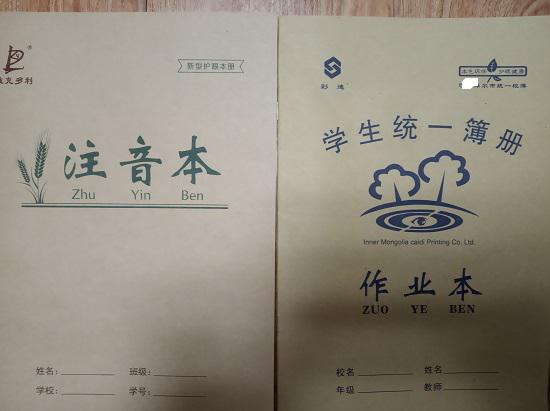 克多利
新型护眼本册
注音本
Zhu Yin Ben
姓名: 班级:
学校: 学号:
彩迪
本色环保 护眼健康
尔市统一校簿
学生统一簿册
Inner Mongolia caidi Printing Co. Ltd.
作业本
ZUO YE BEN
校名 姓名
年级 教师